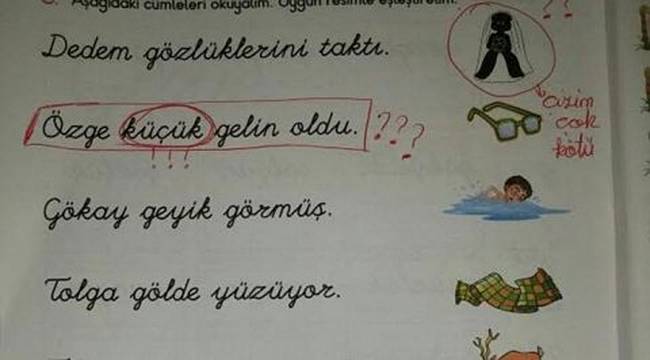 Aşağıdaki cümleleri okuyalım. Uygun resimle eşleştirelim.
??
Dedem gözlüklerini taktı.
Özge küçük gelin oldu. ???
!!!
çizim
çok
kötü
Gökay geyik görmüş.
Tolga gölde yüzüyor.